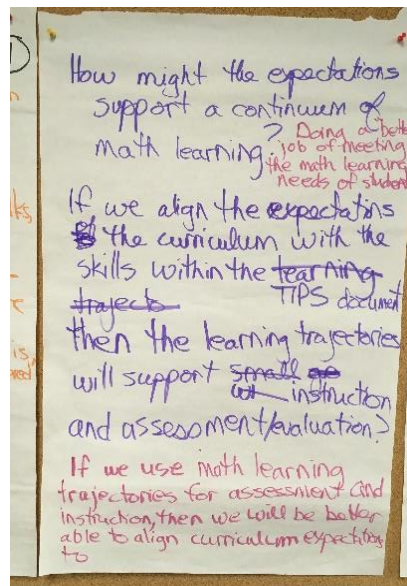 How might the expectations
support a continuum of
math learning?
Doing a bett
job of meeting
the math learning
needs of studen
If we align the expectatins
the curriculum with the
skills within the tearning
trajects TIPS document
then the learning trajectories
will support small
instruction
and assessment/evaluation?
If we use math learning
trajectories for assessment and
instruction, then we will be better
able to align curriculum expectations
to
is,